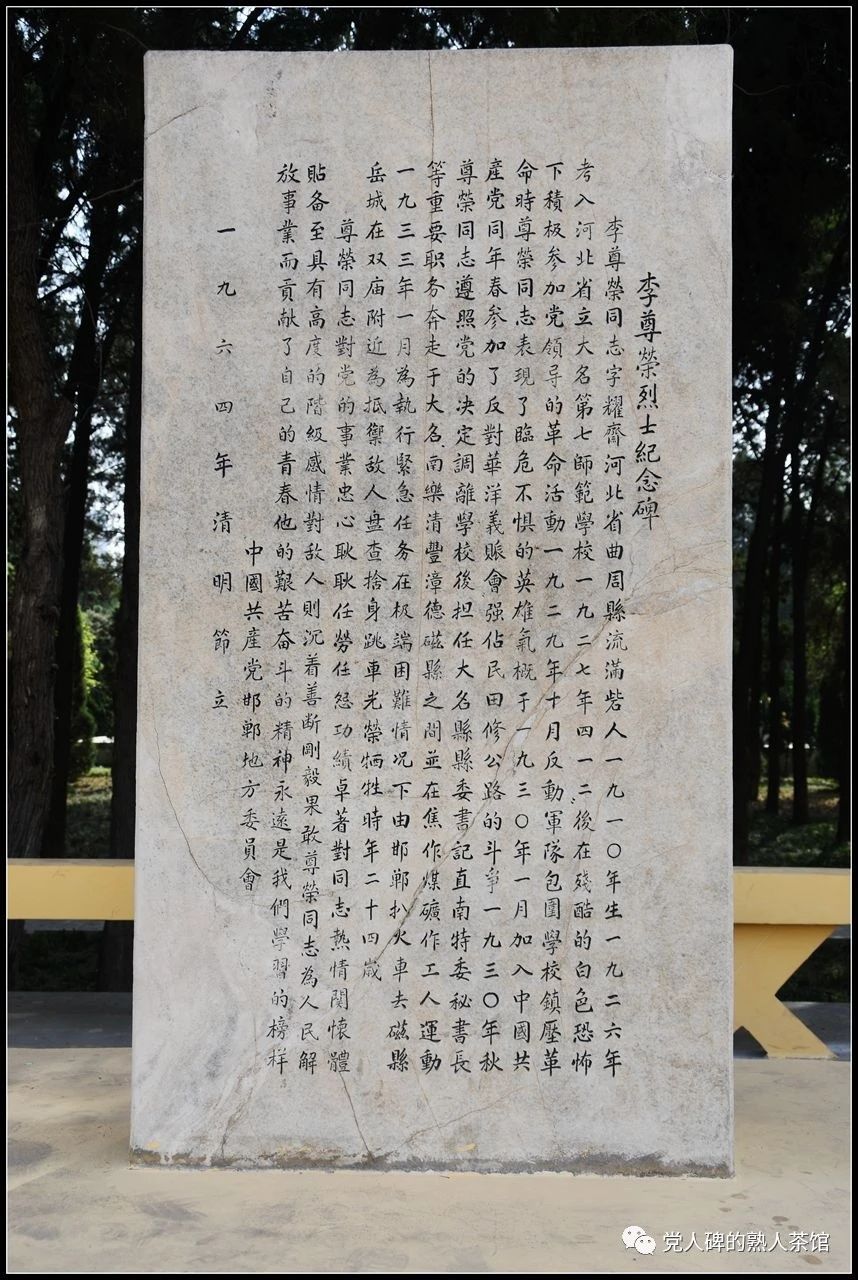 李尊榮烈士紀念碑
李尊榮同志字耀齊河北省曲周縣流滿砦人一九一〇年生一九二六年
考入河北省立大名第七師範學校一九二七年四一二後在殘酷的白色恐怖
下積极参加党領导的革命活動一九二九年十月反動軍隊包圍學校鎮壓革
命時尊榮同志表現了臨危不惧的英雄氣概于一九三〇年一月加入中國共
產党同年春参加了反對華洋義賑會强佔民田修公路的斗爭一九三〇年秋
尊榮同志遵照党的决定調離學校後担任大名縣縣委書記直南特委秘書長
等重要职务奔走于大名南樂清豐漳德磁縣之間並在焦作煤礦作工人運動
一九三三年一月為執行緊急任务在极端困難情况下由邯鄲扒火車去磁縣
岳城在双庙附近為抵禦敌人盘查捨身跳車光榮牺牲時年二十四嵗
尊榮同志對党的事業忠心耿耿任勞任怨功績卓著對同志热情関懷體
貼备至具有高度的階級感情對敌人則沉着善断剛毅果敢尊榮同志為人民解
放事業而貢献了自己的青春他的艱苦奋斗的精神永遠是我們學習的榜样
中國共産党邯鄲地方委員會
一九六四年清明節立
党人碑的熟人茶馆